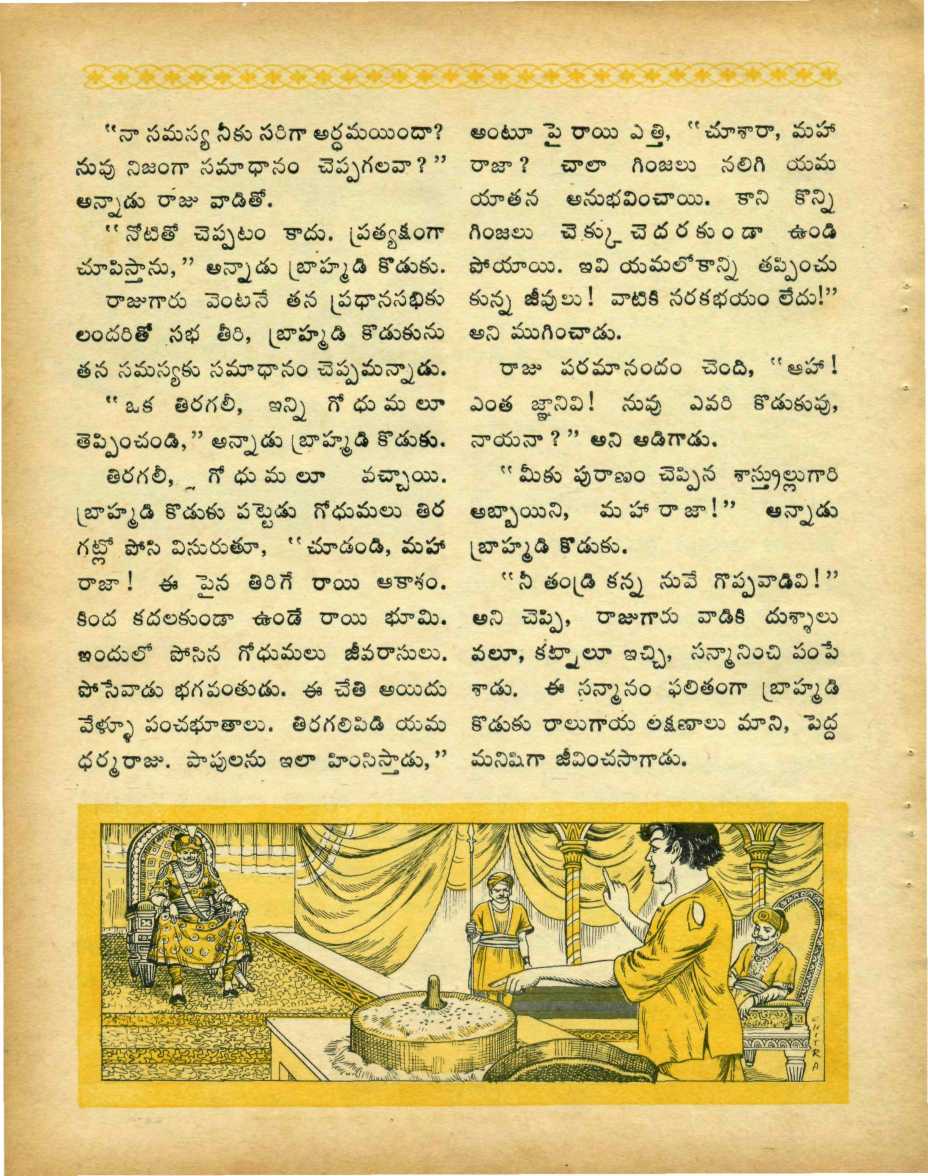 “నా సమస్య నీకు సరిగా అర్థమయిందా?
నువు నిజంగా సమాధానం చెప్పగలవా?”
అన్నాడు రాజు వాడితో.
“నోటితో చెప్పటం కాదు. ప్రత్యక్షంగా
చూపిస్తాను,” అన్నాడు బ్రాహ్మడి కొడుకు.
రాజుగారు వెంటనే తన ప్రధానసభికు
లందరితో సభ తీరి, బ్రాహ్మడి కొడుకును
తన సమస్యకు సమాధానం చెప్పమన్నాడు.
“ఒక తిరగలీ, ఇన్ని గోధుమలూ
తెప్పించండి,” అన్నాడు బ్రాహ్మడి కొడుకు.
తిరగలీ, గోధుమలూ వచ్చాయి.
బ్రాహ్మడి కొడుకు పట్టెడు గోధుమలు తిర
గట్లో పోసి విసురుతూ, “చూడండి, మహా
రాజా! ఈ పైన తిరిగే రాయి ఆకాశం.
కింద కదలకుండా ఉండే రాయి భూమి.
ఇందులో పోసిన గోధుమలు జీవరాసులు.
పోసేవాడు భగవంతుడు. ఈ చేతి అయిదు
వేళ్ళూ పంచభూతాలు. తిరగలిపిడి యమ
ధర్మరాజు. పాపులను ఇలా హింసిస్తాడు,”
అంటూ పై రాయి ఎత్తి, “చూశారా, మహా
రాజా? చాలా గింజలు నలిగి యమ
యాతన అనుభవించాయి. కాని కొన్ని
గింజలు చెక్కుచెదరకుండా ఉండి
పోయాయి. ఇవి యమలోకాన్ని తప్పించు
కున్న జీవులు! వాటికి నరకభయం లేదు!”
అని ముగించాడు.
రాజు పరమానందం చెంది, “ఆహా!
ఎంత జ్ఞానివి! నువు ఎవరి కొడుకువు,
నాయనా?” అని అడిగాడు.
“మీకు పురాణం చెప్పిన శాస్త్రుల్లుగారి
అబ్బాయిని, మహారాజా!” అన్నాడు
బ్రాహ్మడి కొడుకు.
“నీ తండ్రి కన్న నువే గొప్పవాడివి!”
అని చెప్పి, రాజుగారు వాడికి దుశ్శాలు
వలూ, కట్నాలూ ఇచ్చి, సన్మానించి పంపే
శాడు. ఈ సన్మానం ఫలితంగా బ్రాహ్మడి
కొడుకు రాలుగాయ లక్షణాలు మాని, పెద్ద
మనిషిగా జీవించసాగాడు.
CHITRA